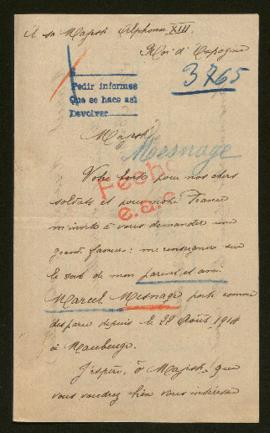 A sa Majesté Alphonse XIII
Roi d'Espagne
3765
Pedir informes
Que se hace así
Devolver
Majesté
Mesnage
Votre bonté pour nos chers
soldats et pour notre France
m'invite à vous demander une
grande faveur: me renseigner sur
le sort de mon parent et ami
Marcel Mesnage porté comme
disparu depuis le 28 Août 1914
à Maubeuge.
J'espère, ô Majesté, que
vous voudrez bien vous intéresser